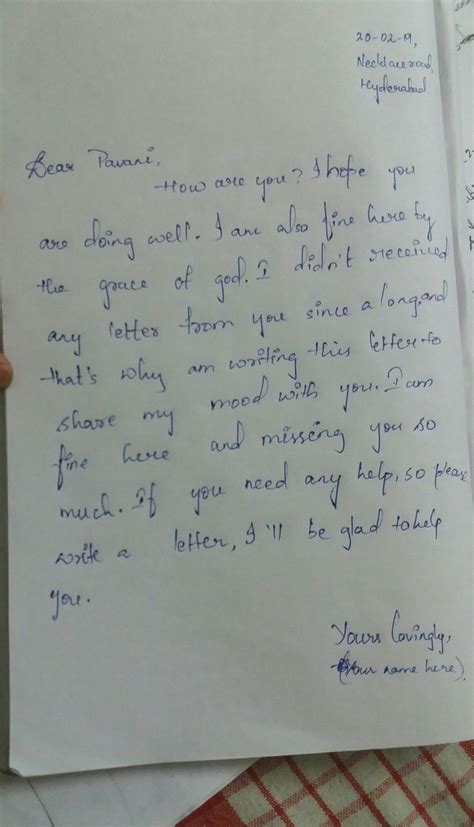 20-02-19,
Necklace road,
Hyderabad
Dear Pavani,
How are you? I hope you
are doing well. I am also fine here by
the grace of god. I didn't received
any letter from you since a long, and
that's why am writing this letter to
share my mood with you. I am
fine here and missing you so
much. If you need any help, so please
write a letter, I'll be glad to help
you.
Yours lovingly,
(Your name here).